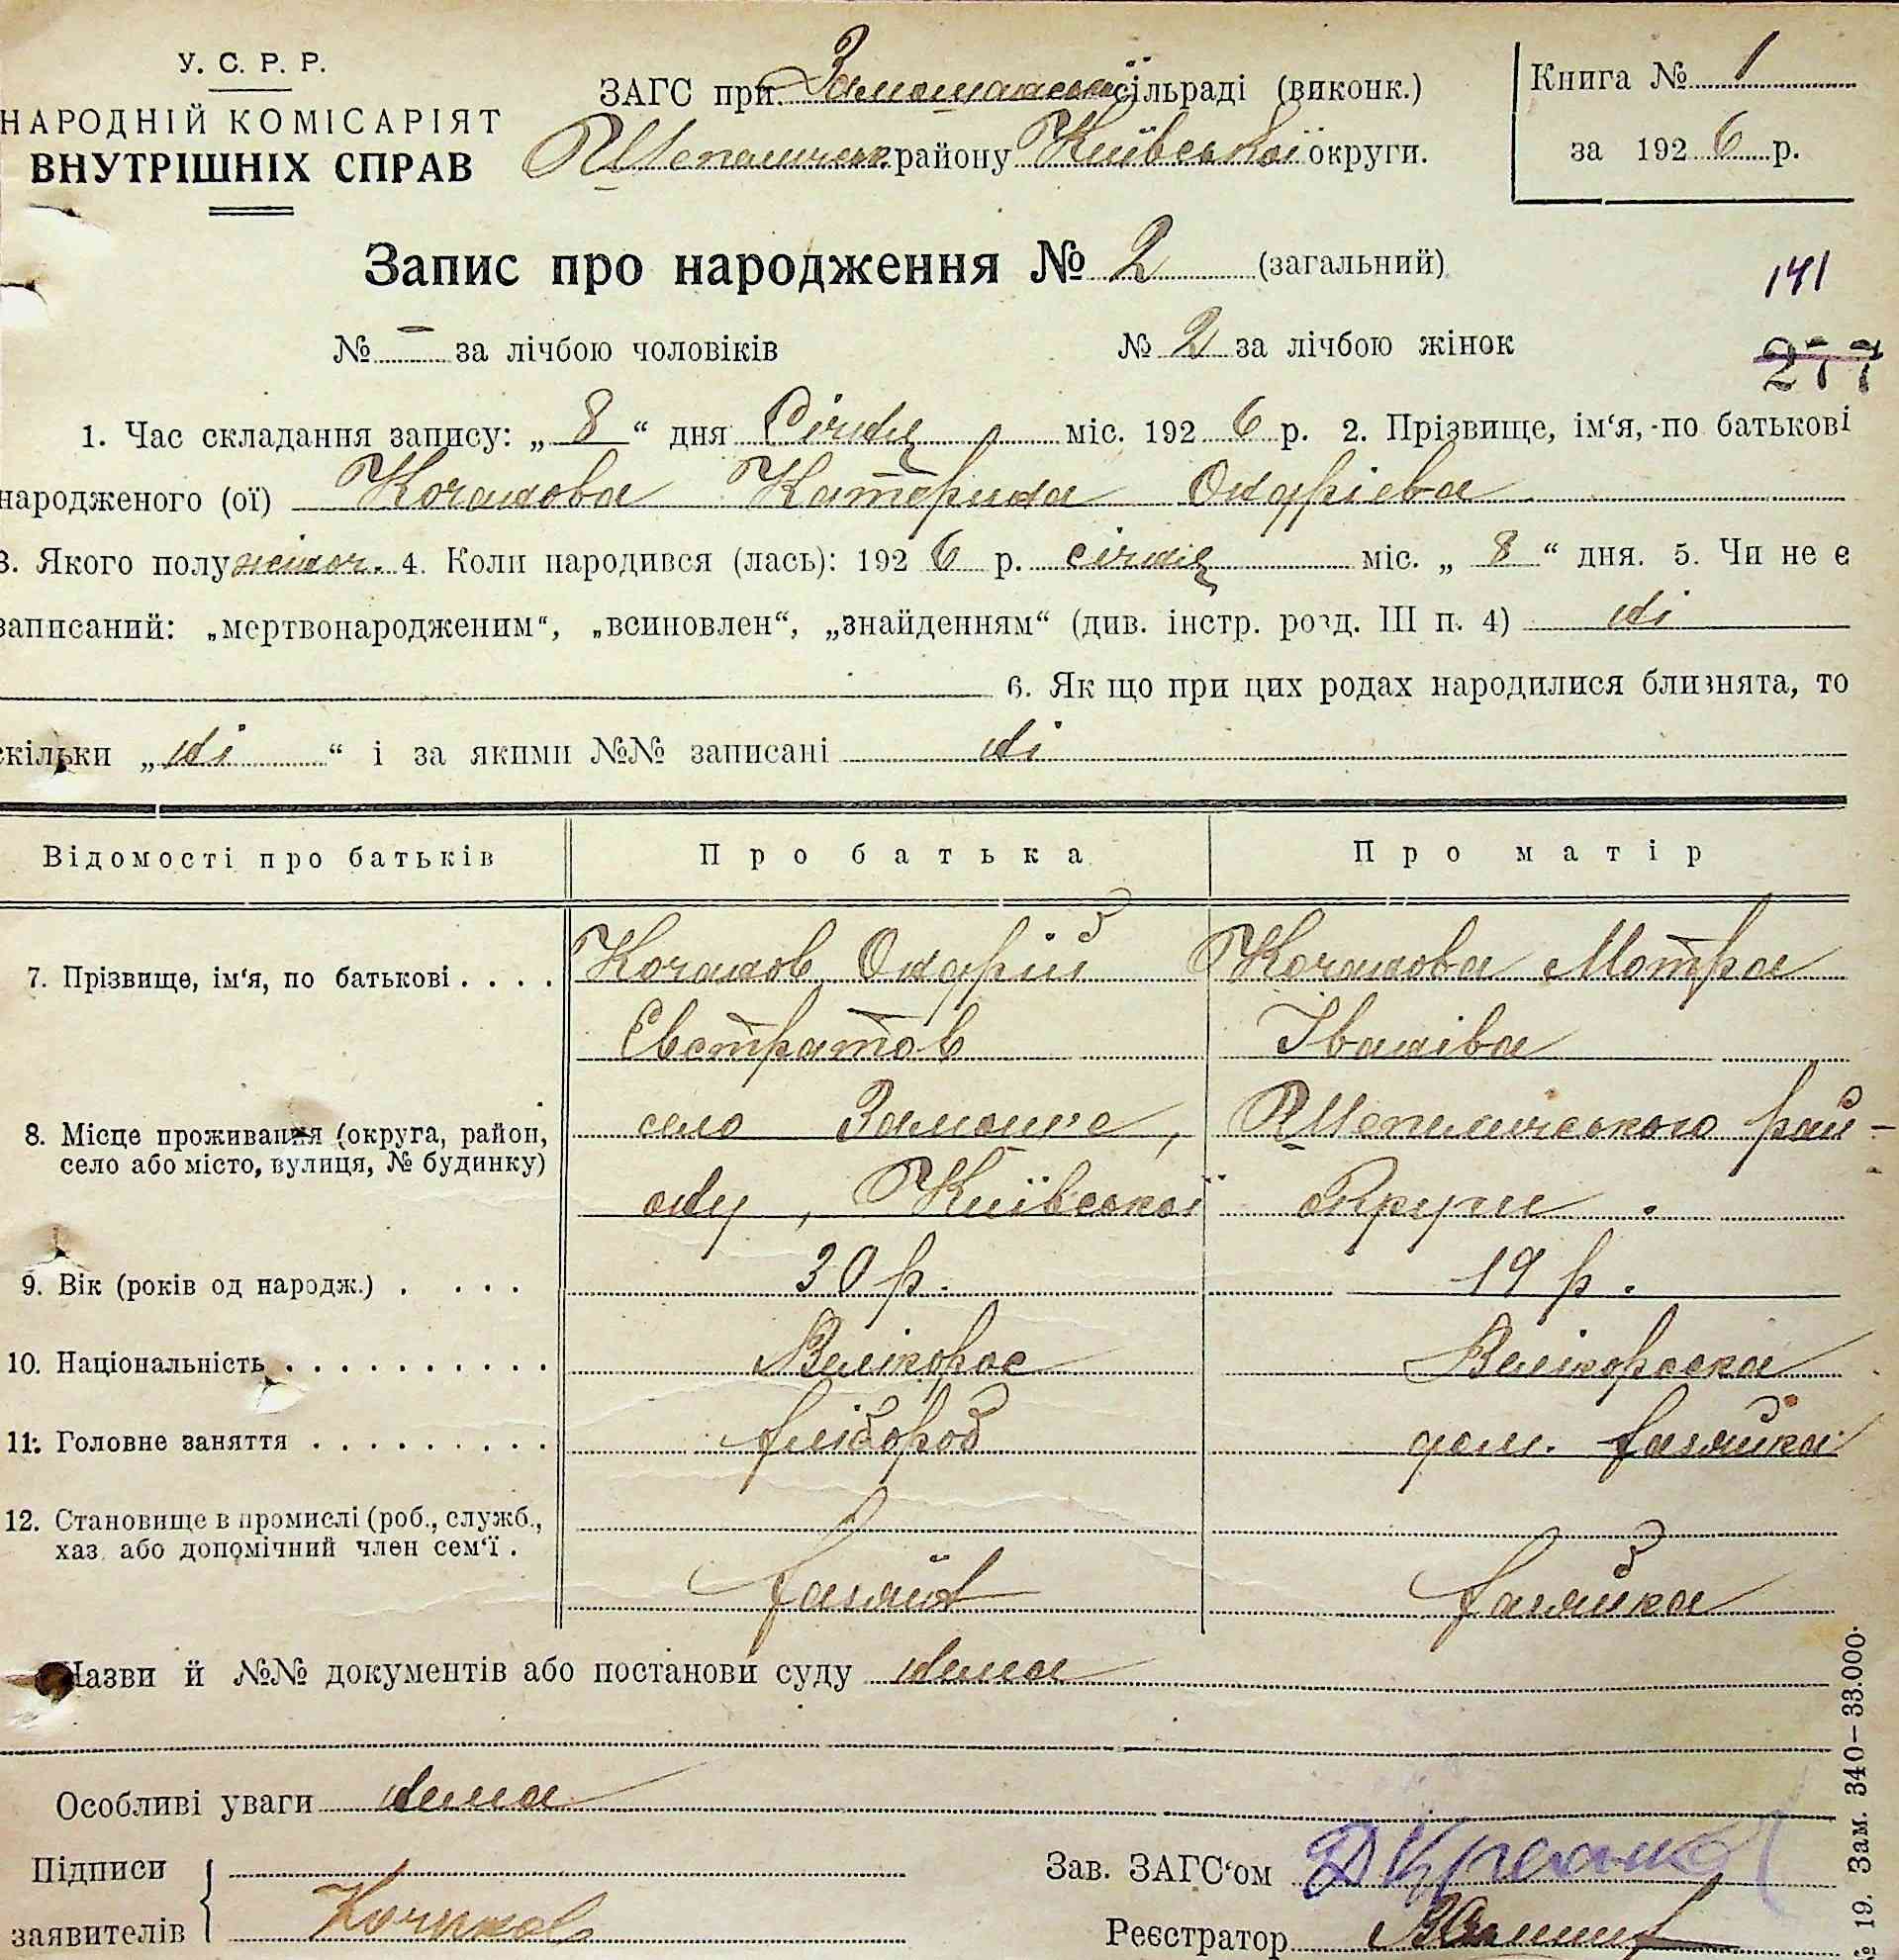 У. С. Р. Р.
НАРОДНІЙ КОМІСАРІЯТ
ВНУТРІШНІХ СПРАВ
ЗАГС при Замошанській сільраді (виконк.)
району Київської округи.
Книга № 1
за 1926 р.
Запис про народження № 2 (загальний)
141
№ – за лічбою чоловіків № 2 за лічбою жінок
277
1. Час складання запису: „ 8 “ дня Січня міс. 1926 р. 2. Прізвище, ім‘я, по батькові
народженого (ої) Кочанова Катерина Ондрієва
3. Якого полу жіноч. 4. Коли народився (лась): 1926 р. січня міс. „ 8 “ дня. 5. Чи не є
записаний: „мертвонародженим“, „всиновлен“, „знайденням“ (див. інстр. розд. III п. 4) ні
6. Як що при цих родах народилися близнята, то
скільки „ ні “ і за якими №№ записані ні
Відомості про батьків Про батька Про матір
7. Прізвище, ім‘я, по батькові . . . . Кочанов Ондрій Кочанова Мотра
Евстратов Іванівна
8. Місце проживання (округа, район, село Замошня, району
село або місто, вулиця, № будинку) Київської округи.
9. Вік (років од народж.) . . . . 30 р. 19 р.
10. Національність . . . . . . . . . . Велікорос Велікороска
11. Головне заняття . . . . . . . . . хлібороб дом. хазяйка
12. Становище в промислі (роб., служб.,
хаз. або допомічний член сем‘ї . хазяїн хазяйка
Назви й №№ документів або постанови суду нема
Особливі уваги нема
Підписи
заявителів Кочанов
Зав. ЗАГС‘ом
Реєстратор
№ 19. Зам. 340–33.000.